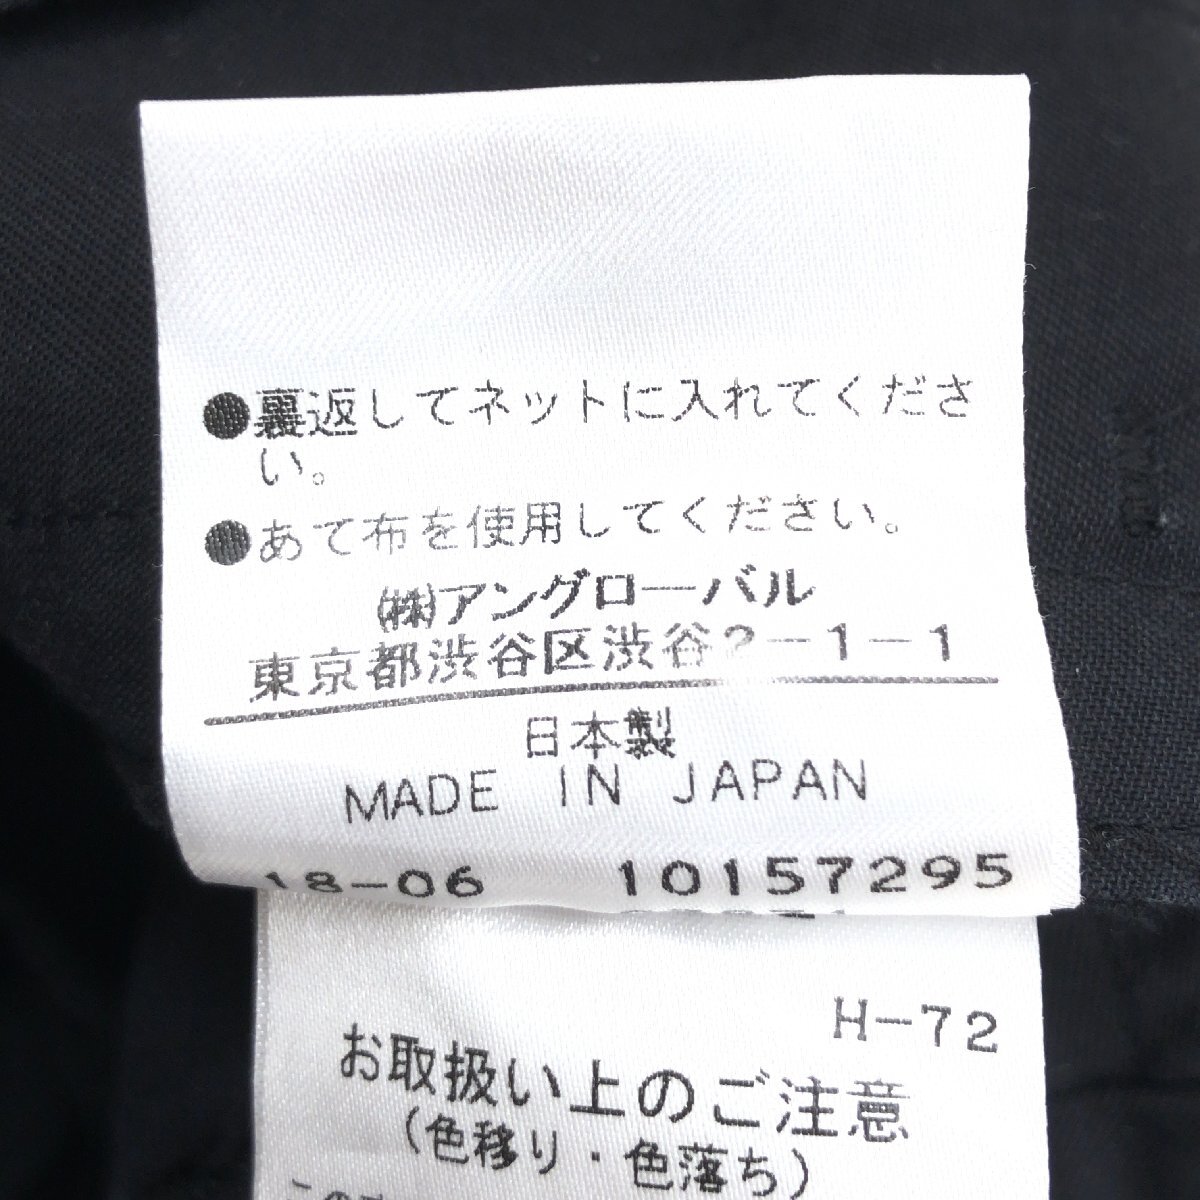 ●裏返してネットに入れてくださ
い。
●あて布を使用してください。
(株)アングローバル
東京都渋谷区渋谷2-1-1
日本製
MADE IN JAPAN
18-06 10157295
H-72
お取扱い上のご注意
(色移り・色落ち)